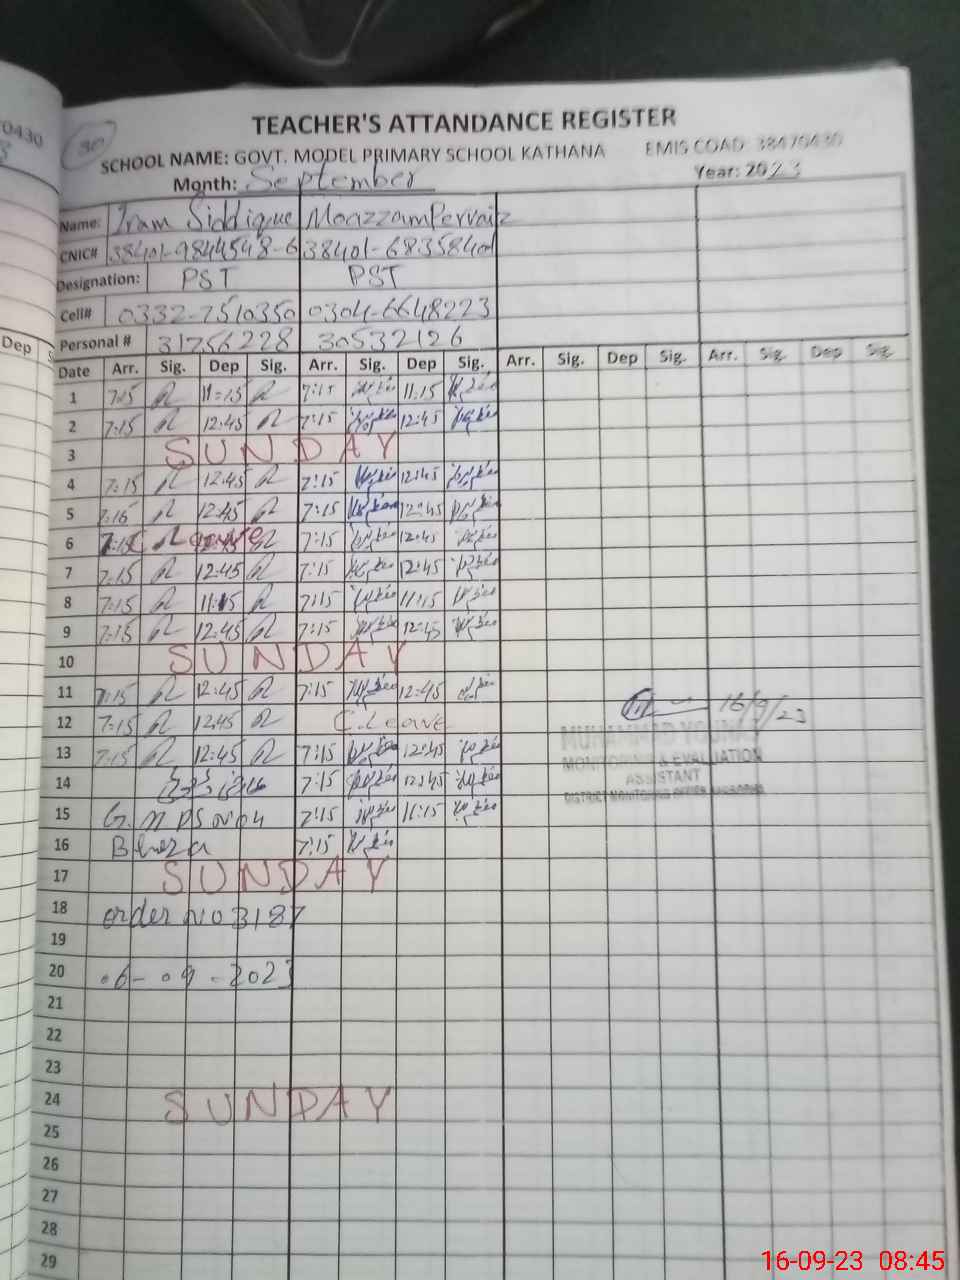 0430
Dep
30
TEACHER'S ATTANDANCE REGISTER
SCHOOL NAME: GOVT. MODEL PRIMARY SCHOOL KATHANA EMIS COAD 38470430
Month: September Year: 2023
Name: Iram Siddique Moazzam Pervaiz
CNIC# 38401-9844548-6 38401-6835840
Designation: PST PST
Cell# 0332-7510350 0304-6648223
Personal # 31756228 30532126
Date Arr. Sig. Dep Sig. Arr. Sig. Dep Sig. Arr. Sig. Dep Sig. Arr. Sig. Dep Sig
1 7:15 11:15 7:15 11:15
2 7:15 12:45 7:15 12:45
3 SUNDAY
4 7:15 12:45 7:15 12:45
5 7:15 12:45 7:15 12:45
6 7:15 C Leave 12:45 7:15 12:45
7 7:15 12:45 7:15 12:45
8 7:15 11:15 7:15 11:15
9 7:15 12:45 7:15 12:45
10 SUNDAY
11 7:15 12:45 7:15 12:45
12 7:15 12:45 C.Leave
16/9/23
MUHAMMAD YOUNAS
13 7:15 12:45 7:15 12:45
MONITORING & EVALUATION
ASSISTANT
14 7:15 12:45
DISTRICT MONITORING OFFICER
15 G.M PS 7:15 11:15
16 7:15
17 SUNDAY
18 order NO 3187
19
20 06-09-2023
21
22
23
24 SUNDAY
25
26
27
28
29
16-09-23 08:45